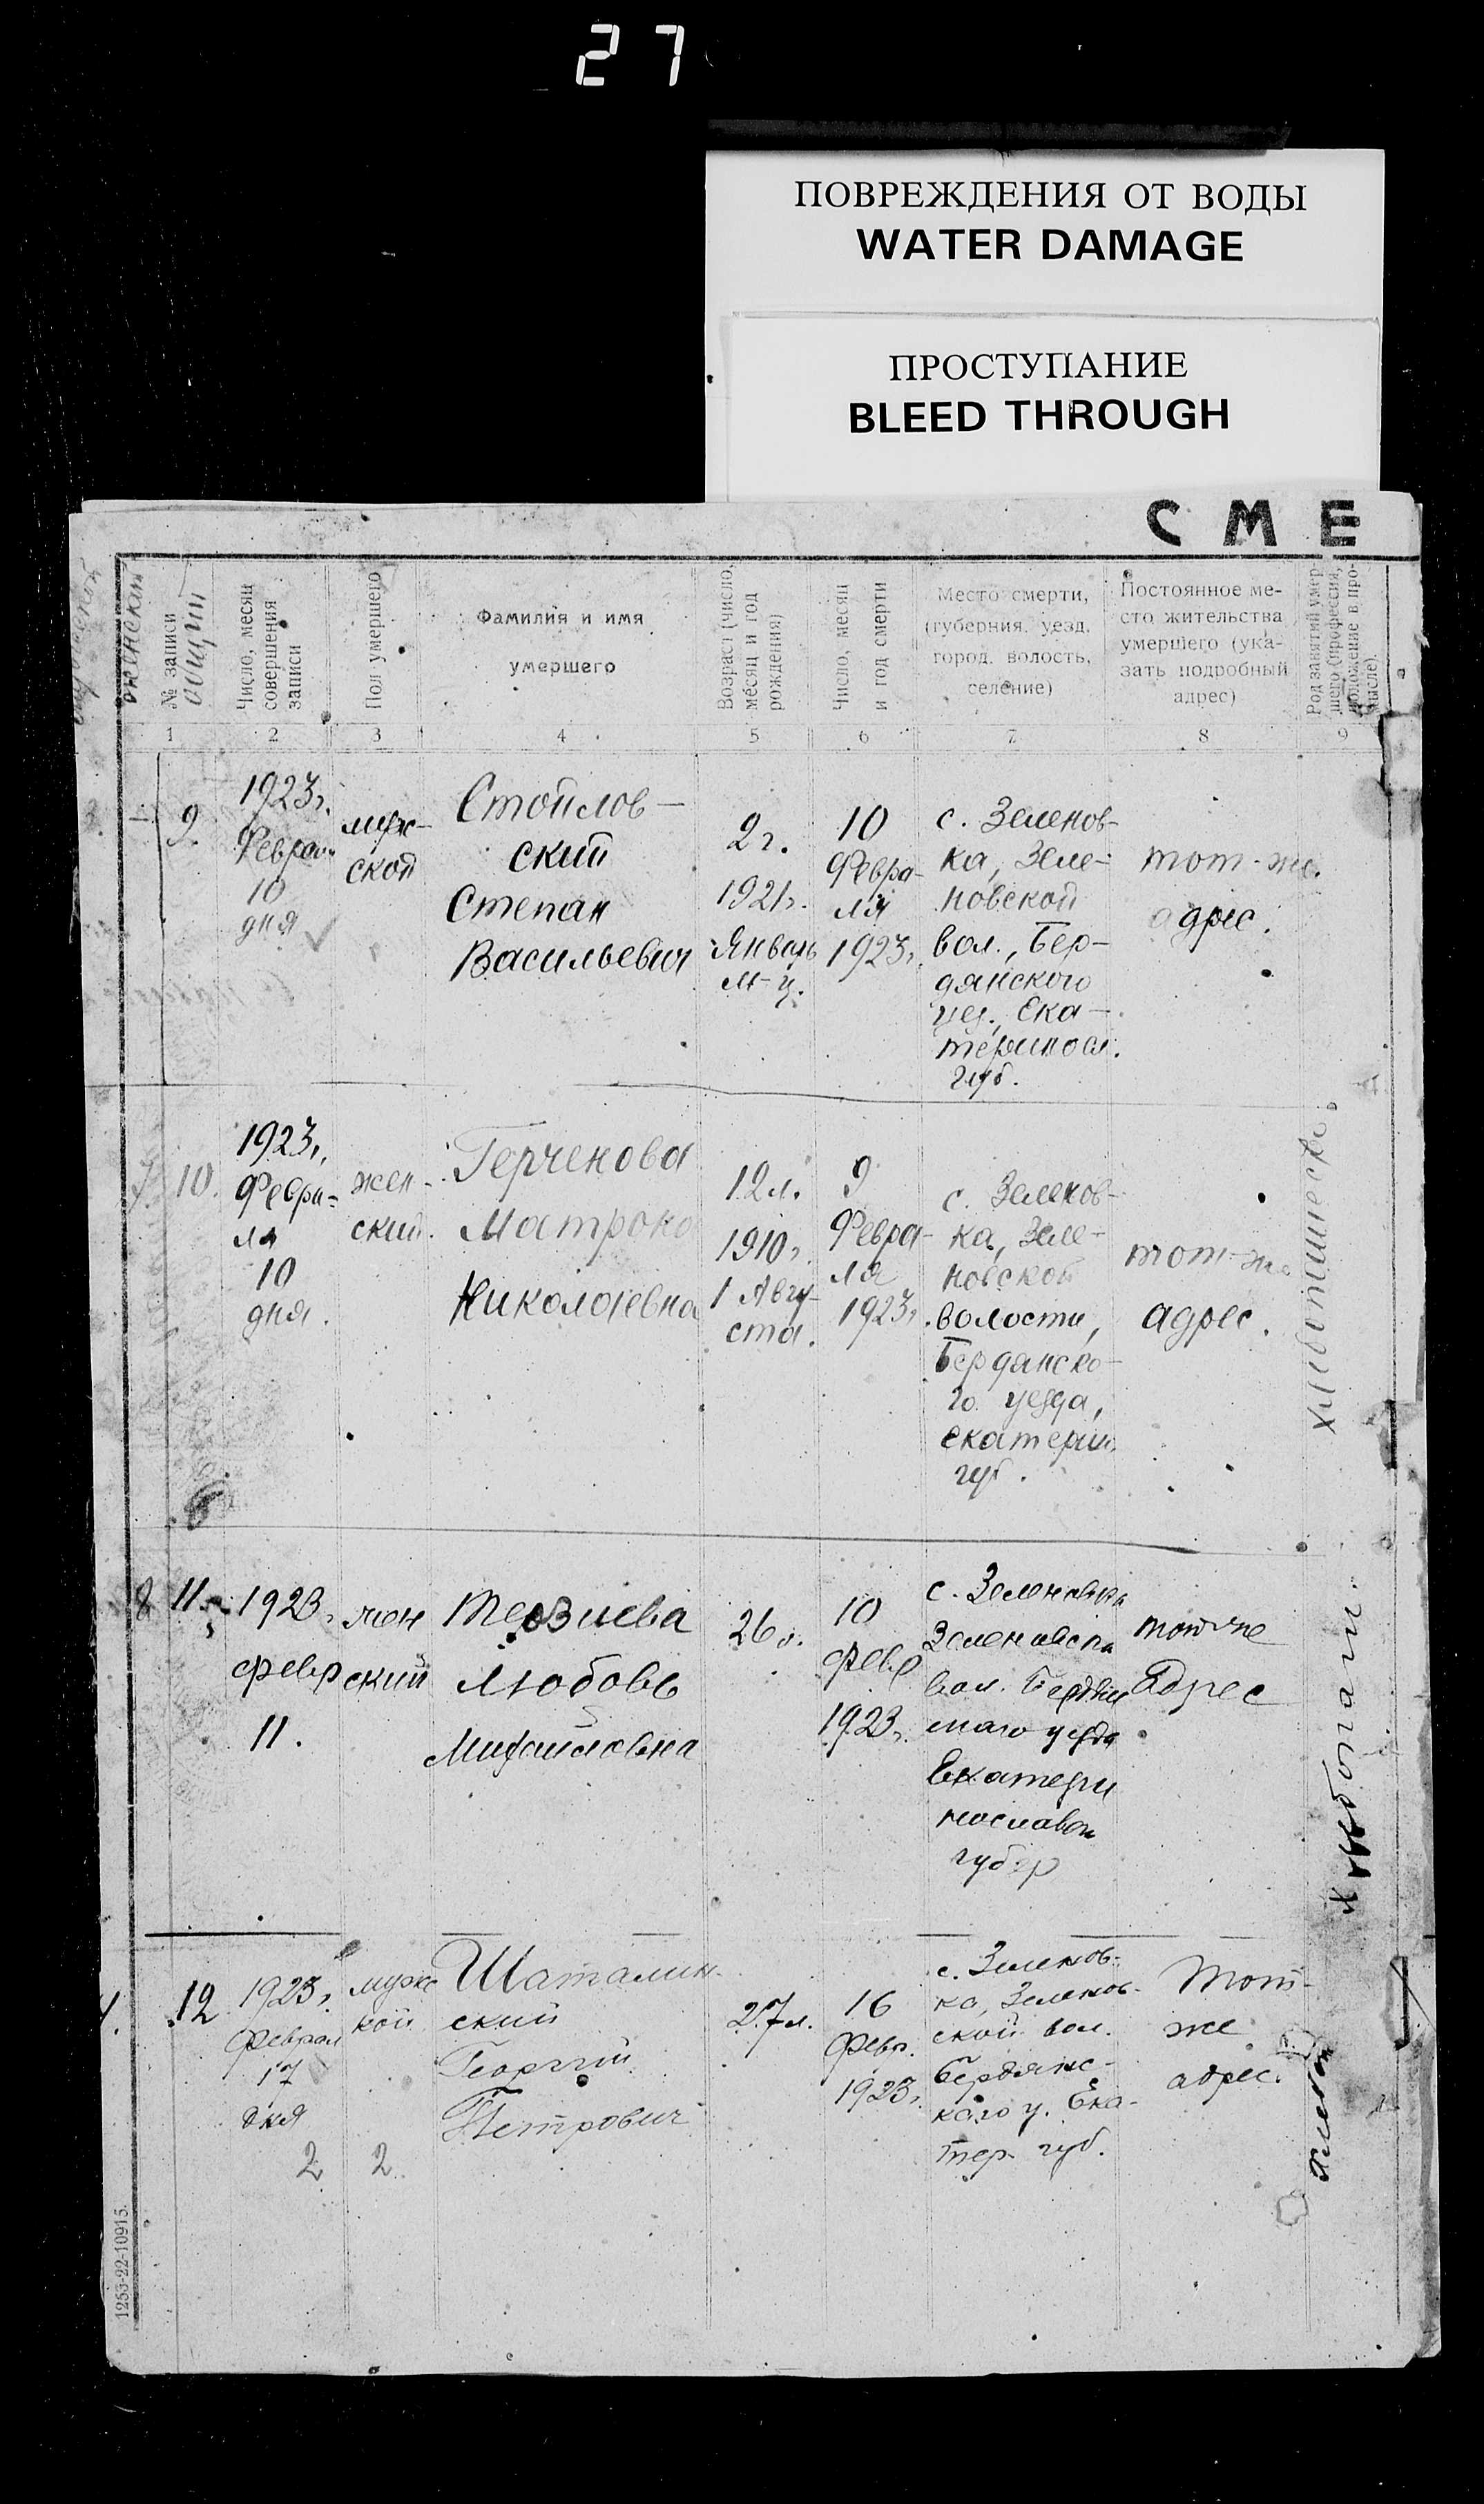 27
ПОВРЕЖДЕНИЯ ОТ ВОДЫ
WATER DAMAGE
ПРОСТУПАНИЕ
BLEED THROUGH
СМЕ
женский
№ записи
общий
Число, месяц
совершения
записи
Пол умершего
Фамилия и имя
умершего
Возраст (число,
месяц и год
рождения)
Число, месяц
и год смерти
Место смерти,
(губерния, уезд,
город, волость,
селение)
Постоянное ме-
сто жительства
умершего (ука-
зать подробный
адрес)
Род занятий умер-
шего (профессия,
положение в про-
мысле).
1 2 3 4 5 6 7 8 9
9
1923г.
Февраля
10
дня
муж-
ской
Стоилов-
ский
Степан
Васильевич
2 г.
1921г.
Январь
м-ц.
10
Февра-
ля
1923г.
с. Зеленов-
ка, Зеле-
новской
вол., Бер-
дянского
уез., Ека-
теринос.
губ.
тот-же
адрес.
7
10.
1923г.
Февра-
ля
10
дня.
жен-
ский.
Герченова
Матрона
Николаевна
12 л.
1910г.
1 Авгу-
ста.
9
Февра-
ля
1923г.
с. Зеленов-
ка, Зеле-
новской
волости,
Бердянско-
го уезда,
екатерин.
губ.
тот-же
адрес.
Хлебопашество.
8
11
1923г.
февр
11.
жен
ский
Терзиева
Любовь
Михайловна
26 г.
10
февр
1923г.
с. Зеленовка
Зеленовска
вол. Бердян
скаго уезда
Екатери
нославск
губер
тотже
Адрес
12
1923г.
Феврал
17
дня
2
мужс
кой
2
Шаталин-
ский
Георгий
Петрович
27 л.
16
Февр.
1923г.
с. Зеленов-
ка, Зеленов-
ской вол.
Бердянс-
каго у. Ека-
тер. губ.
Тот-
же
адрес.
1253-22-10915.